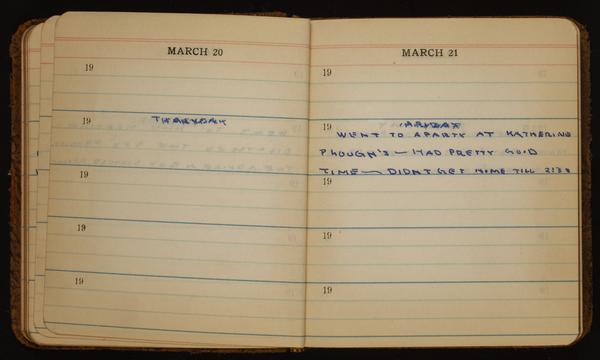 MARCH 20
19
19 THURSDAY
19
19
19
MARCH 21
19
19 FRIDAY
WENT TO A PARTY AT KATHERINE
PLOUGH'S — HAD PRETTY GOOD
TIME — DIDN'T GET HOME TILL
19
19
19